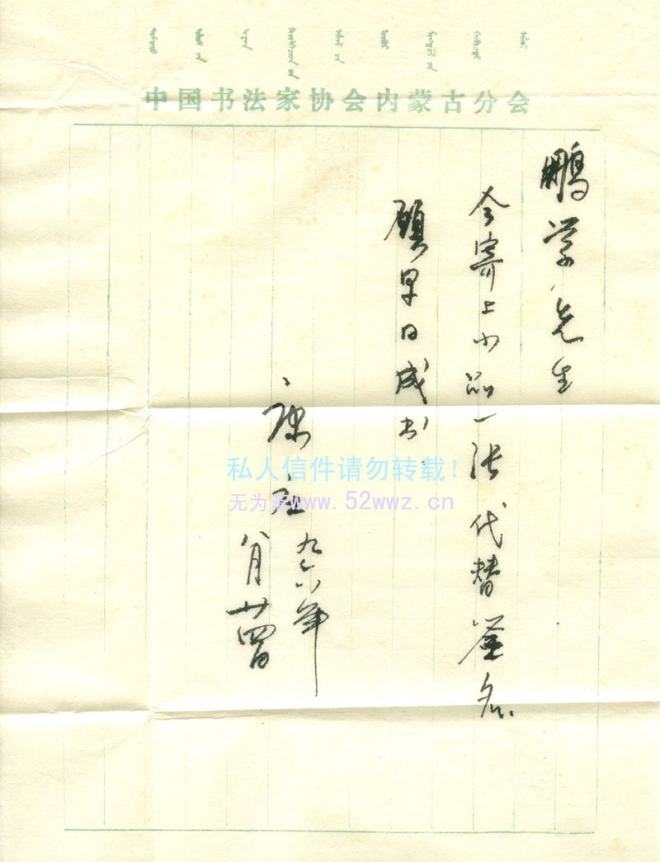 中国书法家协会内蒙古分会
鹏学先生
今寄上小品一张代替签名
愿早日成书
康庄
九六年
八月廿四日
私人信件请勿转载！
无为斋www.52wwz.cn